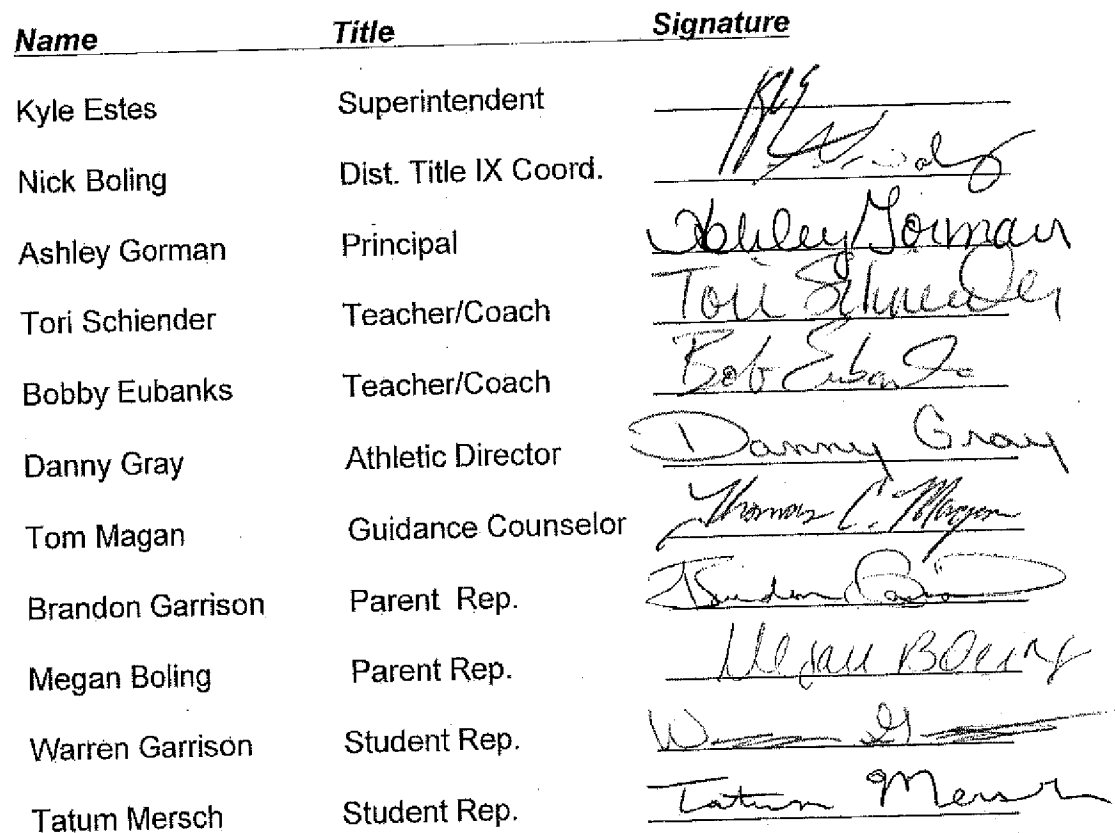 Name Title Signature
Kyle Estes Superintendent
Nick Boling Dist. Title IX Coord.
Ashley Gorman Principal Ashley Gorman
Tori Schiender Teacher/Coach Tori Schneider
Bobby Eubanks Teacher/Coach Bob Eubanks
Danny Gray Athletic Director Danny Gray
Tom Magan Guidance Counselor Thomas C. Magan
Brandon Garrison Parent Rep. Brandon
Megan Boling Parent Rep. Megan Boling
Warren Garrison Student Rep.
Tatum Mersch Student Rep. Tatum Mersch